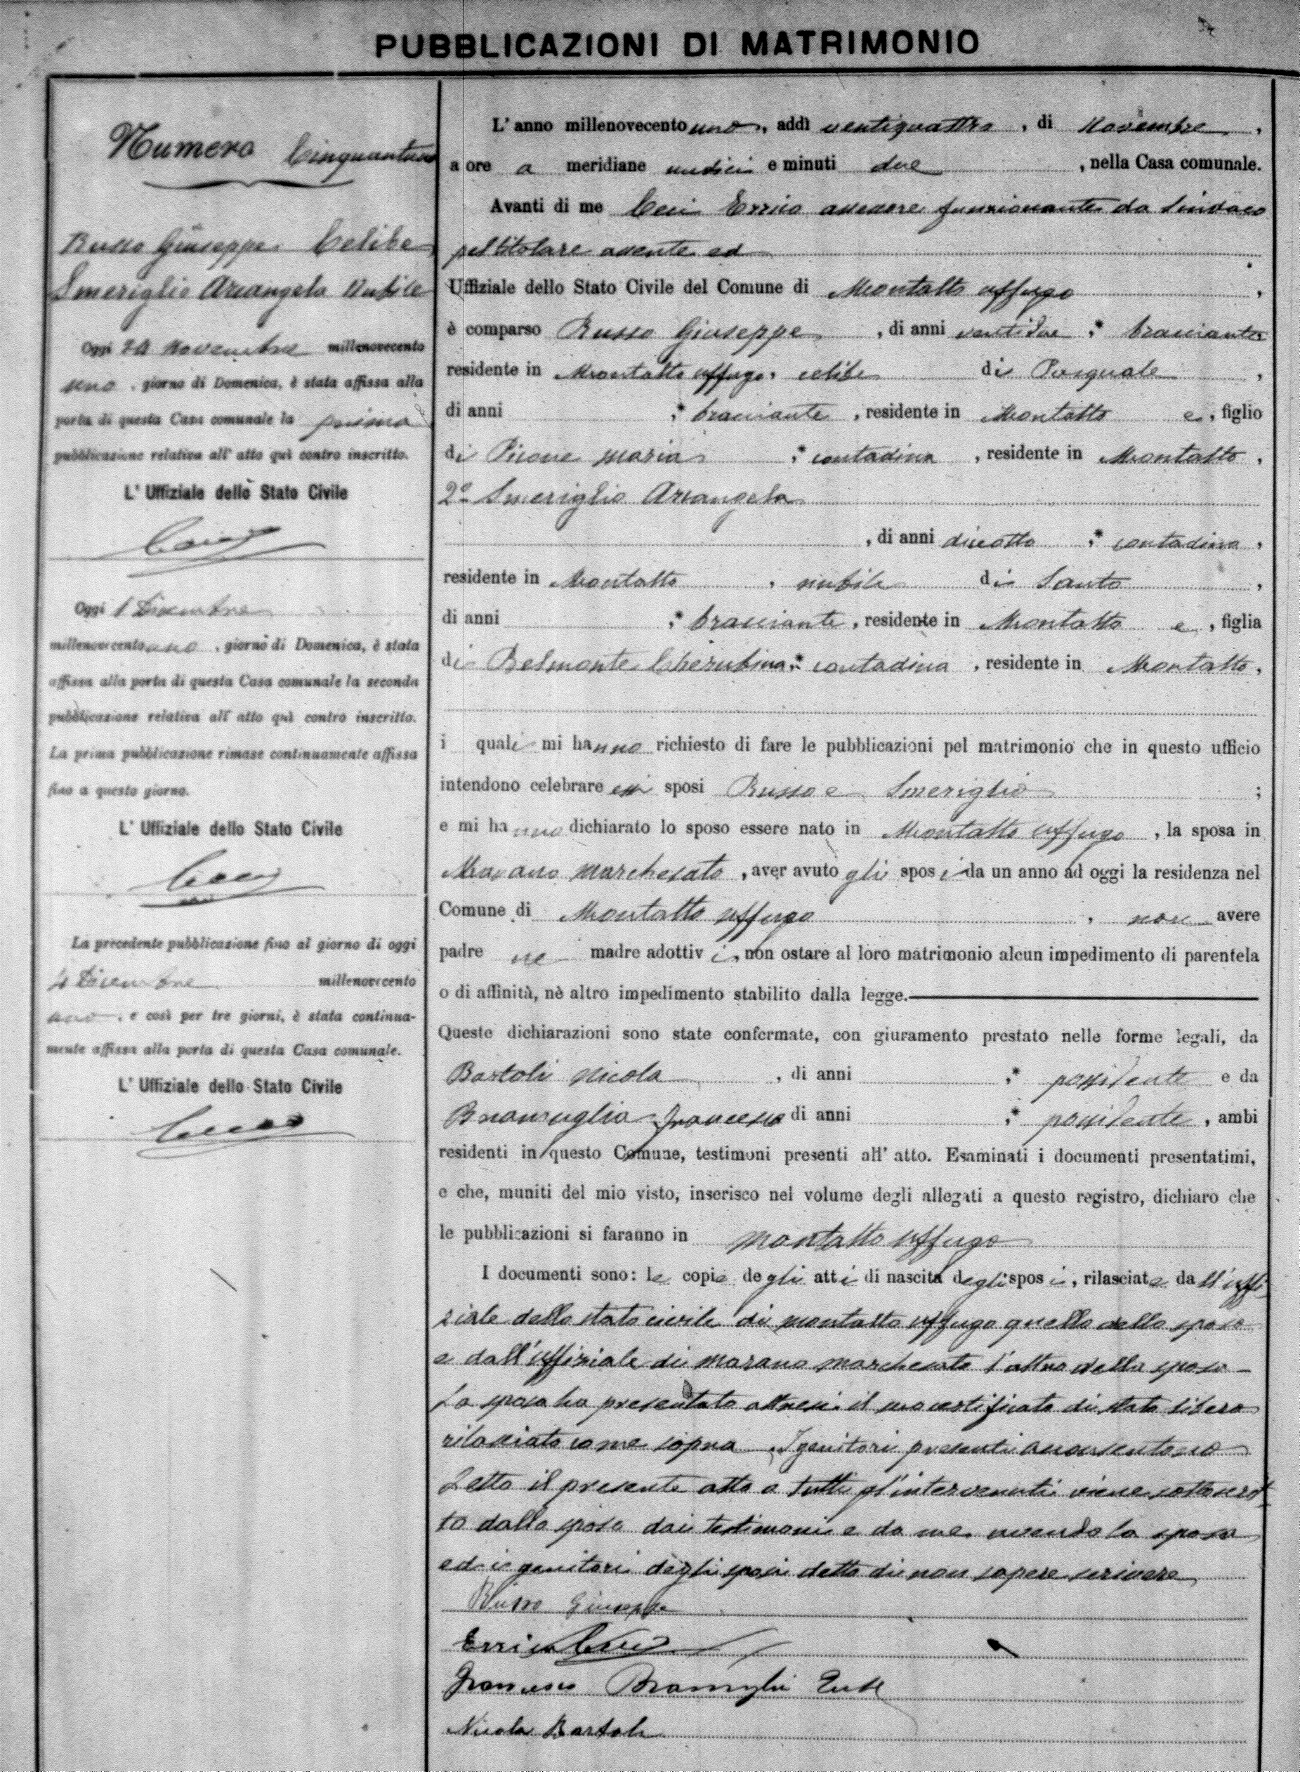 PUBBLICAZIONI DI MATRIMONIO
Numero Cinquantuno
Russo Giuseppe Celibe
Smeriglio Arcangela Nubile
Oggi 24 Novembre millenovecento
uno, giorno di Domenica, è stata affissa alla
porta di questa Casa comunale la prima
pubblicazione relativa all' atto quì contro inscritto.
L' Uffiziale dello Stato Civile
Oggi 1 Dicembre
millenovecento uno, giorno di Domenica, è stata
affissa alla porta di questa Casa comunale la seconda
pubblicazione relativa all' atto quì contro inscritto.
La prima pubblicazione rimase continuamente affissa
fino a questo giorno.
L' Uffiziale dello Stato Civile
La precedente pubblicazione fino al giorno di oggi
4 Dicembre millenovecento
uno, e così per tre giorni, è stata continua-
mente affissa alla porta di questa Casa comunale.
L' Uffiziale dello Stato Civile
L' anno millenovecento uno, addì ventiquattro, di Novembre,
a ore a meridiane undici e minuti due, nella Casa comunale.
Avanti di me Ceci Errico assessore funzionante da Sindaco
pel titolare assente ed
Uffiziale dello Stato Civile del Comune di Montalto Uffugo,
è comparso Russo Giuseppe, di anni ventidue, * bracciante
residente in Montalto Uffugo, celibe di Pasquale,
di anni , * bracciante, residente in Montalto e, figlio
di Picone Maria, * contadina, residente in Montalto,
2º Smeriglio Arcangela
, di anni diciotto, * contadina,
residente in Montalto, nubile di Santo,
di anni , * bracciante, residente in Montalto e, figlia
di Belmonte Cherubina, * contadina, residente in Montalto,
i quali mi hanno richiesto di fare le pubblicazioni pel matrimonio che in questo ufficio
intendono celebrare essi sposi Russo e Smeriglio ;
e mi hanno dichiarato lo sposo essere nato in Montalto Uffugo, la sposa in
Marano Marchesato, aver avuto gli sposi da un anno ad oggi la residenza nel
Comune di Montalto Uffugo, non avere
padre ne madre adottivi, non ostare al loro matrimonio alcun impedimento di parentela
o di affinità, nè altro impedimento stabilito dalla legge.
Queste dichiarazioni sono state confermate, con giuramento prestato nelle forme legali, da
Bartoli Nicola, di anni , * possidente e da
Francesco di anni , * possidente, ambi
residenti in questo Comune, testimoni presenti all' atto. Esaminati i documenti presentatimi,
e che, muniti del mio visto, inserisco nel volume degli allegati a questo registro, dichiaro che
le pubblicazioni si faranno in Montalto Uffugo
I documenti sono: le copie degli atti di nascita degli sposi, rilasciate dall'uffi
ziale dello stato civile di Montalto Uffugo quello dello sposo
e dall'uffiziale di Marano Marchesato l'altro della sposa
La sposa ha presentato altresi il suo certificato di stato libero
rilasciato come sopra. I genitori presenti acconsentono
Letto il presente atto a tutti gl'intervenuti viene sottoscrit
to dallo sposo dai testimoni e da me, avendo la sposa
ed i genitori degli sposi detto di non sapere scrivere
Russo Giuseppe
Errico Ceci
Francesco
Nicola Bartoli